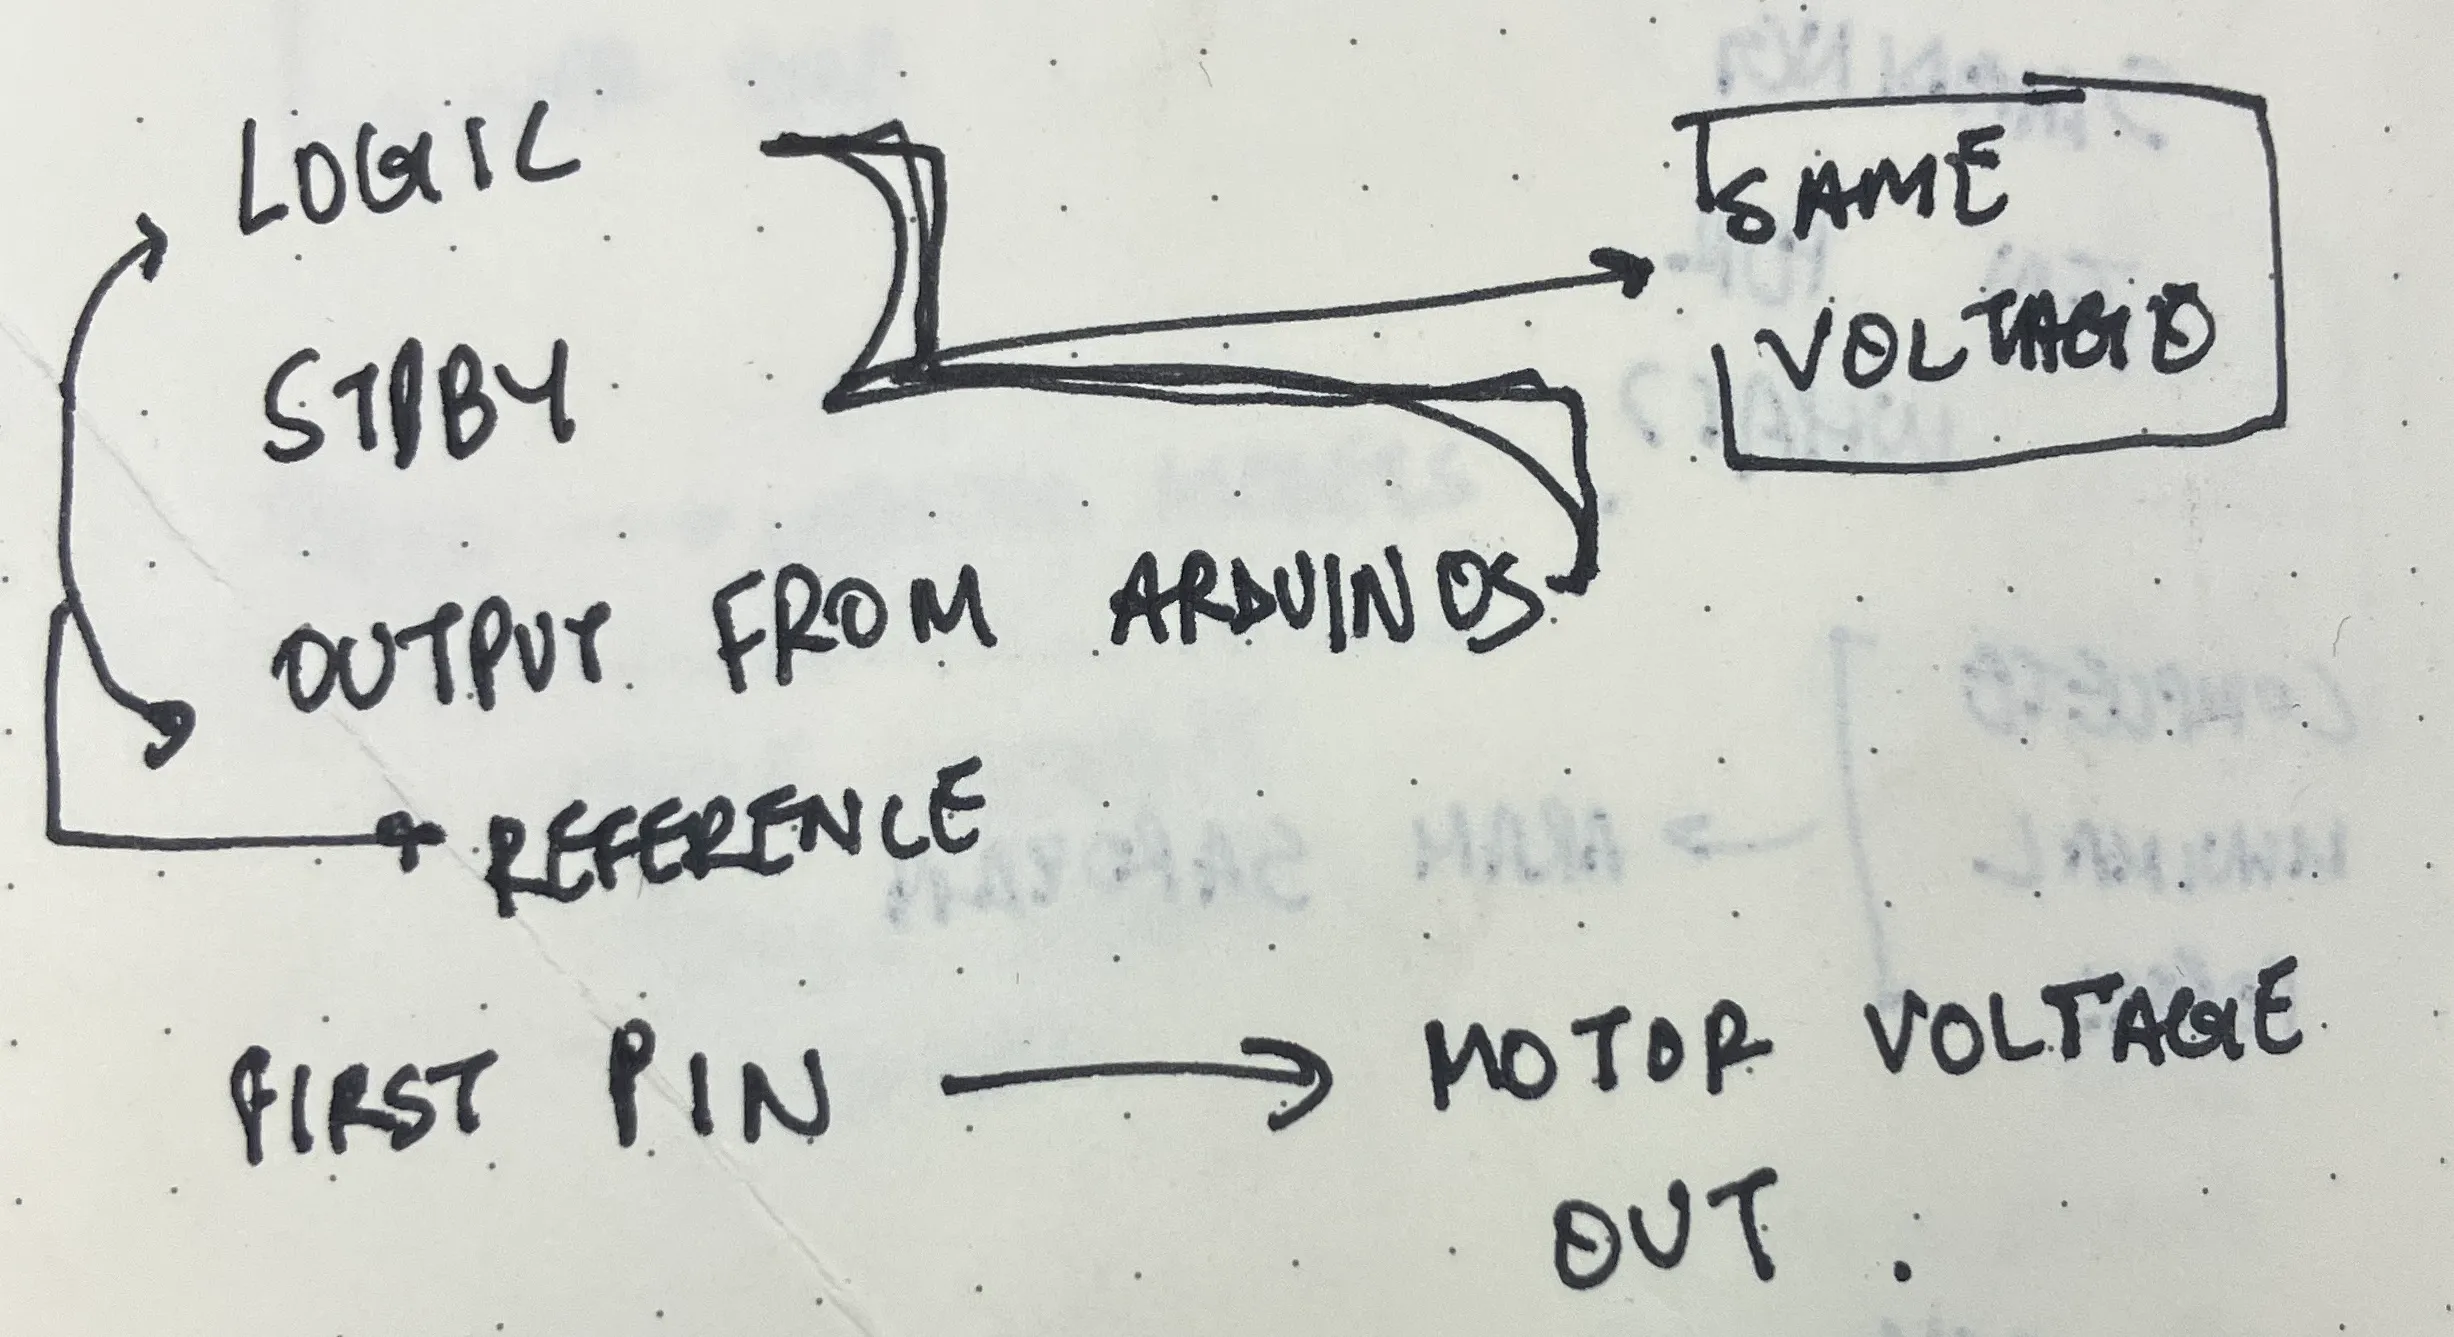 LOGIC
SAME
VOLTAGE
STDBY
OUTPUT FROM ARDUINOS
REFERENCE
FIRST PIN → MOTOR VOLTAGE
OUT.